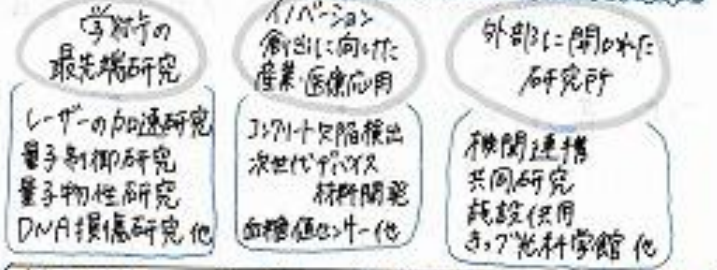 学術的の
最先端研究
レーザーの加速研究
量子制御研究
量子物性研究
DNA損傷研究 他
イノベーション
創出に向けた
産業・医療応用
コンクリート欠陥検出
次世代デバイス
材料開発
血糖値センサー他
外部に開かれた
研究所
機関連携
共同研究
施設供用
きっづ光科学館 他